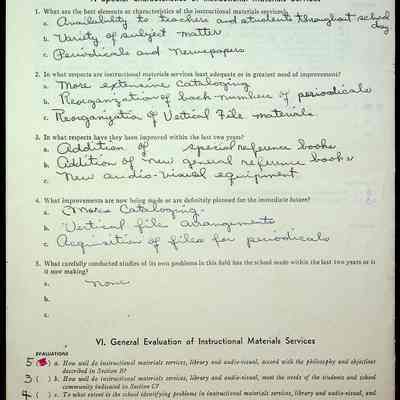 1. What are the best elements or characteristics of the instructional materials services?
a. Availability to teachers and students throughout school day
b. Variety of subject matter
c. Periodicals and newspapers
2. In what respects are instructional materials services least adequate or in greatest need of improvement?
a. More extensive cataloging
b. Reorganization of back numbers of periodicals
c. Reorganization of Vertical File materials
3. In what respects have they been improved within the last two years?
a. Addition of special reference books
b. Addition of new general reference books
c. New audio-visual equipment
4. What improvements are now being made or are definitely planned for the immediate future?
a. More Cataloging.
b. Vertical file arrangements
c. Acquisition of files for periodicals
5. What carefully conducted studies of its own problems in this field has the school made within the last two years or is
it now making?
a. none
b.
c.
VI. General Evaluation of Instructional Materials Services
EVALUATIONS
5 ( ) a. How well do instructional materials services, library and audio-visual, accord with the philosophy and objectives
described in Section B?
3 ( ) b. How well do instructional materials services, library and audio-visual, meet the needs of the students and school
community indicated in Section C?
4 ( ) c. To what extent is the school identifying problems in instructional materials services, library and audio-visual, and